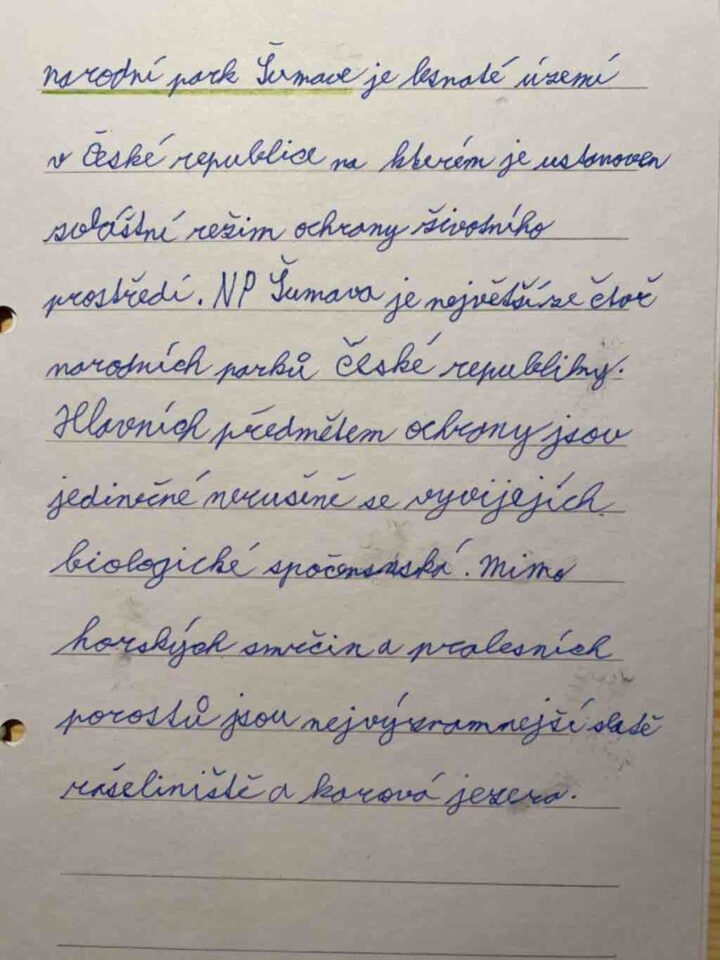 národní park Šumave je lesnaté území
v České republice na kterém je ustanoven
zvláštní režim ochrany životního
prostředí. NP Šumava je největší ze čtoř
narodních parků České republiky.
Hlavních předmětem ochrany jsou
jedinečné nerušeně se vyvijejích
biologické
horských smrčin a pralesních
porostů jsou nejvýznamnejší slatě
rašeliniště a karová jezera.